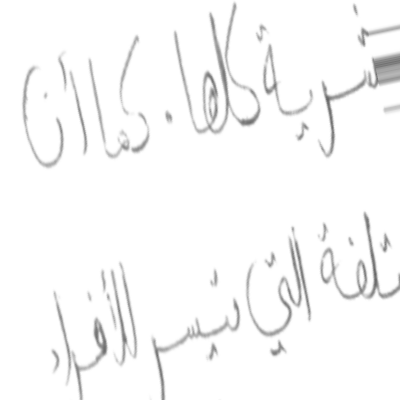 شرية كلها. كما أن
تلفة التي تيسر للأفراد